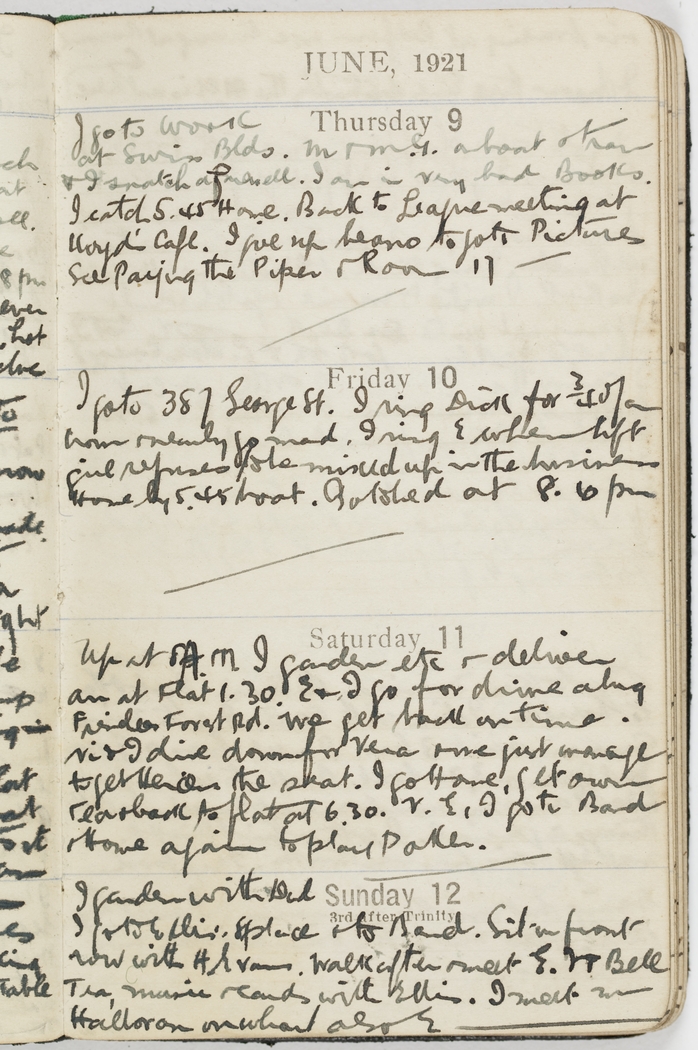 JUNE, 1921
Thursday 9
I go to work
at Swiss Blds. M & M.G. on boat & train
& I snatch a farewell. I am in very bad Books.
I catch 5.45 Home. Back to League meeting at
Lloyd's Cafe. I give up beano to go to Pictures
See Paying the Piper & Room 17
Friday 10
I go to 387 George St. I ring Dick for 3/4 of an
hour & nearly go mad. I ring E when lift
girl refuses to be mixed up in the business
Home by 5.45 boat. Go to bed at 8. pm
Saturday 11
Up at A.M. I garden etc & deliver
am at Flat 1.30. E & I go for drive along
Forest Rd. We get back on time.
Vi & I dive down for Vera & we just manage
to get her on the seat. I go Home, get own
tea & back to flat at 6.30. V. E, I go to Band
& Home again to play
I garden with Dad
Sunday 12
3rd after Trinity
I go to Ellis's place & to Band. Sit in front
row with H. Evans. Walk after & meet E. Bell
Tea, music & cards with Ellis. I meet
Halloran on wharf also E